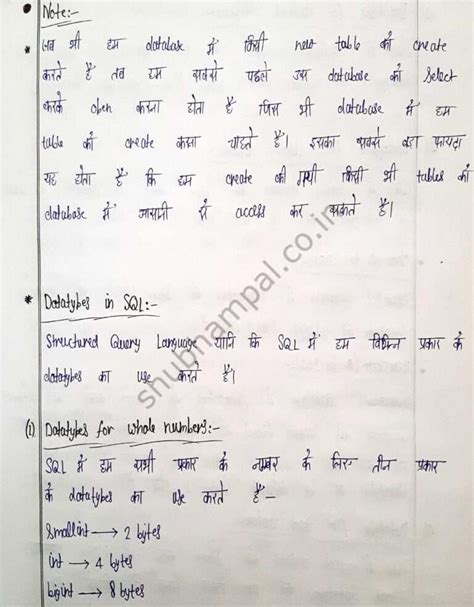 * Note:-
जब भी हम database में किसी new table को create
करते हैं तब हम सबसे पहले उस database को select
करके open करना होता है जिस भी database में हम
table को create करना चाहते हैं। इसका सबसे बड़ा फायदा
यह होता है कि हम create की गयी किसी भी tables को
database में आसानी से access कर सकते हैं।
* Datatypes in SQL:-
Structured Query Language यानि कि SQL में हम विभिन्न प्रकार के
datatypes का use करते हैं।
(1) Datatypes for whole numbers:-
SQL में हम सभी प्रकार के नम्बर के लिए तीन प्रकार
के datatypes का use करते हैं -
Smallint → 2 bytes
int → 4 bytes
bigint → 8 bytes
shubhampal.co.in